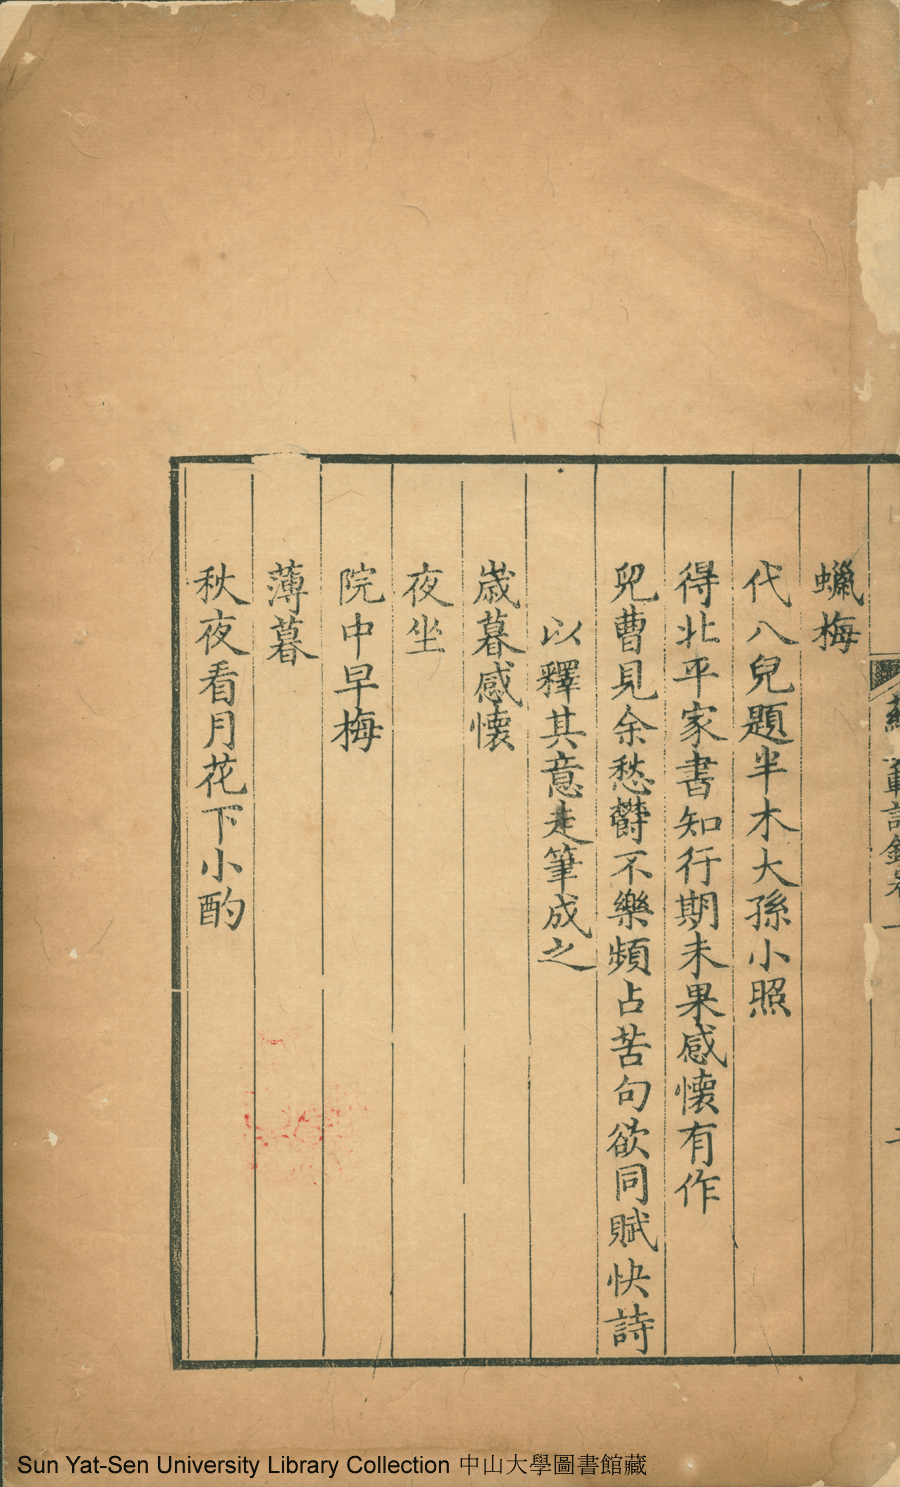 蠟梅
代八兒題半木大孫小照
得北平家書知行期未果感懷有作
兒曹見余愁欝不樂頻占苦句欲同賦快詩
以釋其意走筆成之
歲暮感懷
夜坐
院中早梅
薄暮
秋夜看月花下小酌
Sun Yat-Sen University Library Collection 中山大學圖書館藏